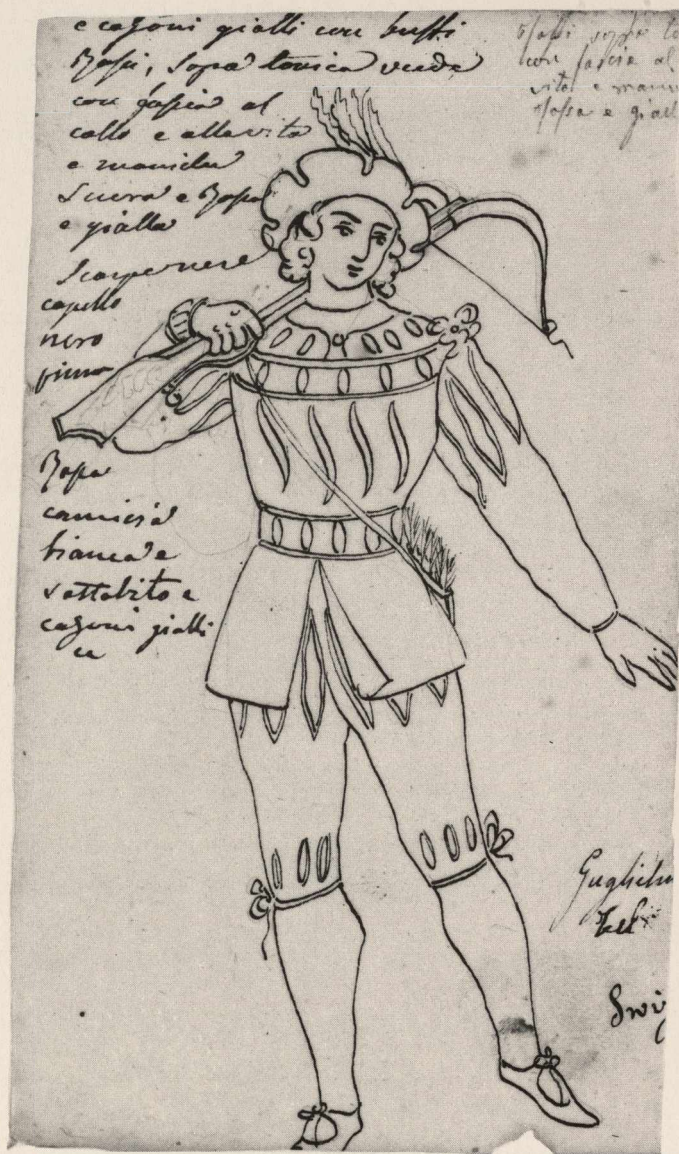 e cazoni gialli con buffi
Rossi, Sopra tonica verde
con fassia al
collo e alla vita
e maniche
Scura e Rossa
e gialla
Scarpe nere
capello
nero
piuma
Rossa
camicia
bianca e
sottabito e
cazoni gialli
Rossi sopra
con fascia al
vita e
Rossa e giall
Guglielm
Tel
Sviz